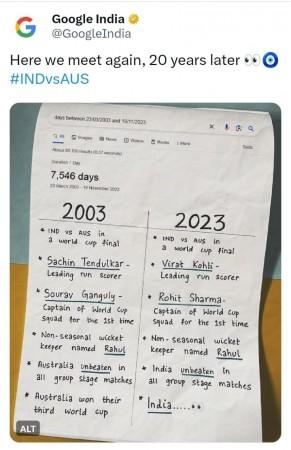 Google India
@GoogleIndia
Here we meet again, 20 years later 👀🧿
#INDvsAUS
days between 23/03/2003 and 19/11/2023
All
Images
News
Videos
Books
More
Tools
Duration 1 Day
7,546 days
23 March 2003 - 19 November 2023
2003
* IND vs AUS in
a world cup final
* Sachin Tendulkar -
Leading run scorer
* Sourav Ganguly -
Captain of World Cup
squad for the 1st time
* Non-seasonal wicket
keeper named Rahul
* Australia unbeaten in
all group stage matches
* Australia won their
third world cup
2023
* IND vs AUS in
a world cup final
* Virat Kohli -
Leading run scorer
* Rohit Sharma -
Captain of World Cup
squad for the 1st time
* Non-seasonal wicket
keeper named Rahul
* India unbeaten in
all group stage matches
* India.....👀
ALT